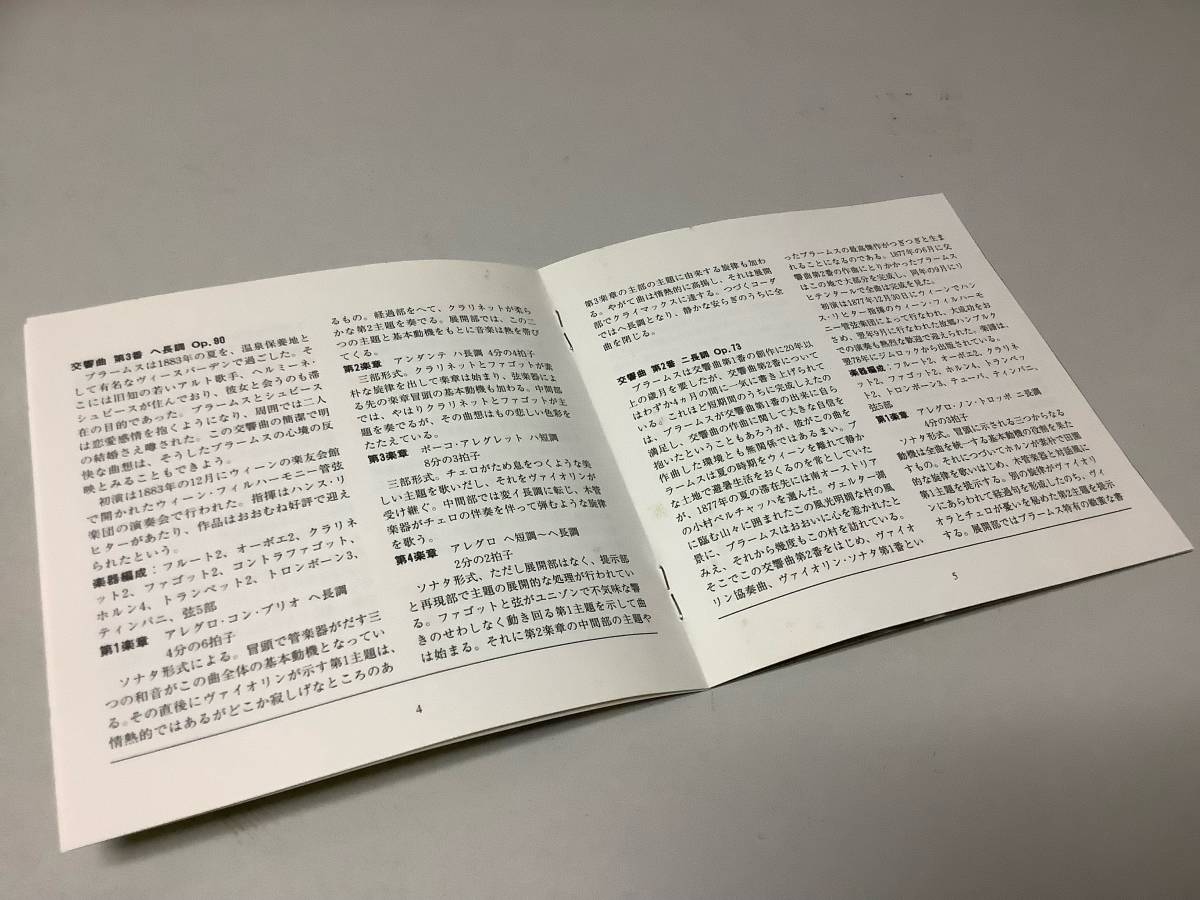 交響曲 第3番 ヘ長調 Op.90
ブラームスは1883年の夏を、温泉保養地と
して有名なヴィースバーデンで過ごした。そ
こには旧知の若いアルト歌手、ヘルミーネ・
シュピースが住んでおり、彼女と会うのも滞
在の目的であった。ブラームスとシュピース
は恋愛感情を抱くようになり、周囲では二人
の結婚さえ噂された。この交響曲の簡潔で明
快な曲想は、そうしたブラームスの心境の反
映とみることもできよう。
初演は1883年の12月にウィーンの楽友会館
で開かれたウィーン・フィルハーモニー管弦
楽団の演奏会で行われた。指揮はハンス・リ
ヒターがあたり、作品はおおむね好評で迎え
られたという。
楽器編成：フルート2、オーボエ2、クラリネ
ット2、ファゴット2、コントラファゴット、
ホルン4、トランペット2、トロンボーン3、
ティンパニ、弦5部
第1楽章 アレグロ・コン・ブリオ ヘ長調
4分の6拍子
ソナタ形式による。冒頭で管楽器がだす三
つの和音がこの曲全体の基本動機となってい
る。その直後にヴァイオリンが示す第1主題は、
情熱的ではあるがどこか寂しげなところのあ
るもの。経過部をへて、クラリネットが柔ら
かな第2主題を奏でる。展開部では、この二
つの主題と基本動機をもとに音楽は熱を帯び
てくる。
第2楽章 アンダンテ ハ長調 4分の4拍子
三部形式。クラリネットとファゴットが素
朴な旋律を出して楽章は始まり、弦楽器によ
る先の楽章冒頭の基本動機も加わる。中間部
では、やはりクラリネットとファゴットが主
題を奏でるが、その曲想はもの悲しい色彩を
たたえている。
第3楽章 ポーコ・アレグレット ハ短調
8分の3拍子
三部形式。チェロがため息をつくような美
しい主題を歌いだし、それをヴァイオリンが
受け継ぐ。中間部では変イ長調に転じ、木管
楽器がチェロの伴奏を伴って弾むような旋律
を歌う。
第4楽章 アレグロ ヘ短調〜ヘ長調
2分の2拍子
ソナタ形式、ただし展開部はなく、提示部
と再現部で主題の展開的な処理が行われてい
る。ファゴットと弦がユニゾンで不気味な響
きのせわしなく動き回る第1主題を示して曲
は始まる。それに第2楽章の中間部の主題や
4
第3楽章の主部の主題に由来する旋律も加わ
る。やがて曲は情熱的に高揚し、それは展開
部でクライマックスに達する。つづくコーダ
ではヘ長調となり、静かな安らぎのうちに全
曲を閉じる。
交響曲 第2番 ニ長調 Op.73
ブラームスは交響曲第1番の創作に20年以
上の歳月を要したが、交響曲第2番について
はわずか4ヵ月の間に一気に書き上げられて
いる。これほど短期間のうちに完成しえたの
は、ブラームスが交響曲第1番の出来に自ら
満足し、交響曲の作曲に関して大きな自信を
抱いたということもあろうが、彼がこの曲を
作曲した環境とも無関係ではあるまい。ブ
ラームスは夏の時期をウィーンを離れて静か
な土地で避暑生活をおくるのを常としていた
が、1877年の夏の滞在先には南オーストリア
の小村ペルチャッハを選んだ。ヴェルター湖
に臨む山々に囲まれたこの風光明媚な村の風
景に、ブラームスはおおいに心を惹かれたと
みえ、それから幾度もこの村を訪れている。
そこでこの交響曲第2番をはじめ、ヴァイオ
リン協奏曲、ヴァイオリン・ソナタ第1番とい
ったブラームスの最高傑作がつぎつぎと生ま
れることになるのである。1877年の6月に交
響曲第2番の作曲にとりかかったブラームス
はこの地で大部分を完成し、同年の9月にリ
ヒテンタールで全曲は完成を見た。
初演は1877年12月30日にウィーンでハン
ス・リヒター指揮のウィーン・フィルハーモ
ニー管弦楽団によって行なわれ、大成功をお
さめ、翌年9月に行なわれた故郷ハンブルク
での演奏も熱烈な歓迎で迎えられた。楽譜は、
翌78年にジムロックから出版されている。
楽器編成：フルート2、オーボエ2、クラリネ
ット2、ファゴット2、ホルン4、トランペッ
ト2、トロンボーン3、チューバ、ティンパニ、
弦5部
第1楽章 アレグロ・ノン・トロッポ ニ長調
4分の3拍子
ソナタ形式。冒頭に示される三つからなる
動機は全曲を統一する基本動機の役割を果た
すもの。それにつづいてホルンが素朴で田園
的な旋律を歌いはじめ、木管楽器と対話風に
第1主題を提示する。別の旋律がヴァイオリ
ンにあらわれて経過句を形成したのち、ヴィ
オラとチェロが憂いを秘めた第2主題を提示
する。展開部ではブラームス特有の厳重な書
5